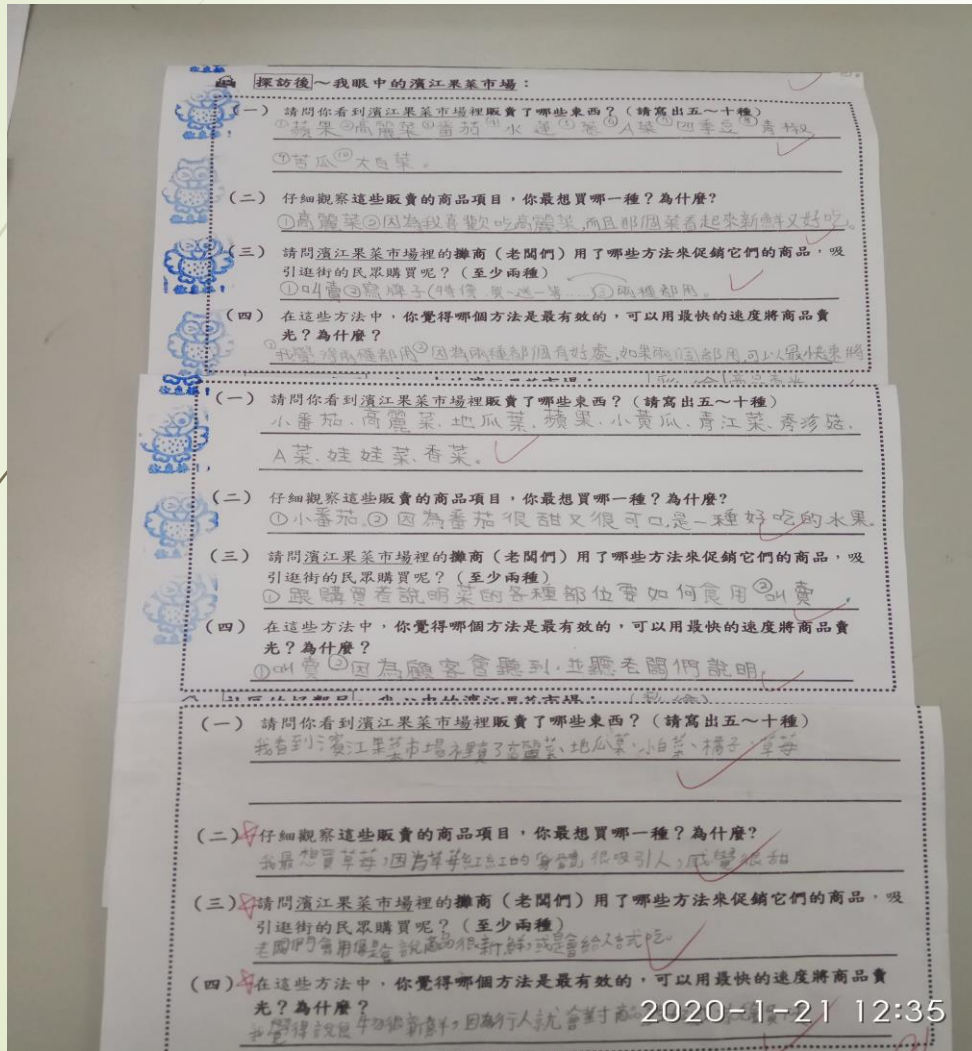 探訪後～我眼中的濱江果菜市場：
（一） 請問你看到濱江果菜市場裡販賣了哪些東西？（請寫出五～十種）
①蘋果②高麗菜③番茄④水蓮⑤蔥⑥A菜⑦四季豆⑧青椒
⑨苦瓜⑩大白菜。
（二） 仔細觀察這些販賣的商品項目，你最想買哪一種？為什麼？
①高麗菜②因為我喜歡吃高麗菜,而且那個菜看起來新鮮又好吃。
（三） 請問濱江果菜市場裡的攤商（老闆們）用了哪些方法來促銷它們的商品，吸
引逛街的民眾購買呢？（至少兩種）
①叫賣②寫牌子(特價、買一送一等……)③兩種都用。
（四） 在這些方法中，你覺得哪個方法是最有效的，可以用最快的速度將商品賣
光？為什麼？
①我覺得兩種都用②因為兩種都個有好處,如果兩個都用,可以最快速將
（一） 請問你看到濱江果菜市場裡販賣了哪些東西？（請寫出五～十種）
小番茄、高麗菜、地瓜葉、蘋果、小黃瓜、青江菜、秀珍菇、
A菜、娃娃菜、香菜。
（二） 仔細觀察這些販賣的商品項目，你最想買哪一種？為什麼？
①小番茄,②因為番茄很甜又很可口,是一種好吃的水果.
（三） 請問濱江果菜市場裡的攤商（老闆們）用了哪些方法來促銷它們的商品，吸
引逛街的民眾購買呢？（至少兩種）
①跟購買者說明菜的各種部位要如何食用②叫賣。
（四） 在這些方法中，你覺得哪個方法是最有效的，可以用最快的速度將商品賣
光？為什麼？
①叫賣②因為顧客會聽到,並聽老闆們說明
（一） 請問你看到濱江果菜市場裡販賣了哪些東西？（請寫出五～十種）
我看到濱江果菜市場裡賣了高麗菜、地瓜葉、小白菜、橘子、草莓
（二） 仔細觀察這些販賣的商品項目，你最想買哪一種？為什麼？
我最想買草莓,因為草莓紅紅的身體很吸引人,感覺很甜
（三） 請問濱江果菜市場裡的攤商（老闆們）用了哪些方法來促銷它們的商品，吸
引逛街的民眾購買呢？（至少兩種）
老闆們會用 說商品很新鮮,或是會給人試吃。
（四） 在這些方法中，你覺得哪個方法是最有效的，可以用最快的速度將商品賣
光？為什麼？
我覺得說食物很新鮮,因為行人就會對商品
2020-1-21 12:35